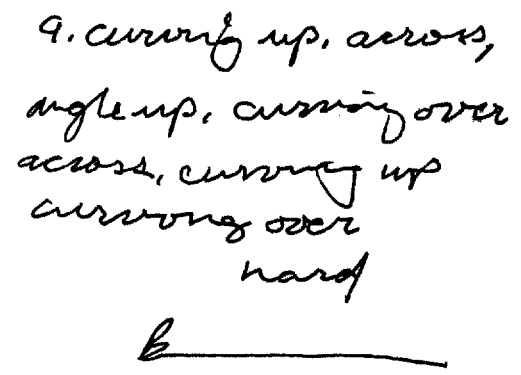 9. curving up, across,
angle up, curving over
across, curving up
curving over
hard
B